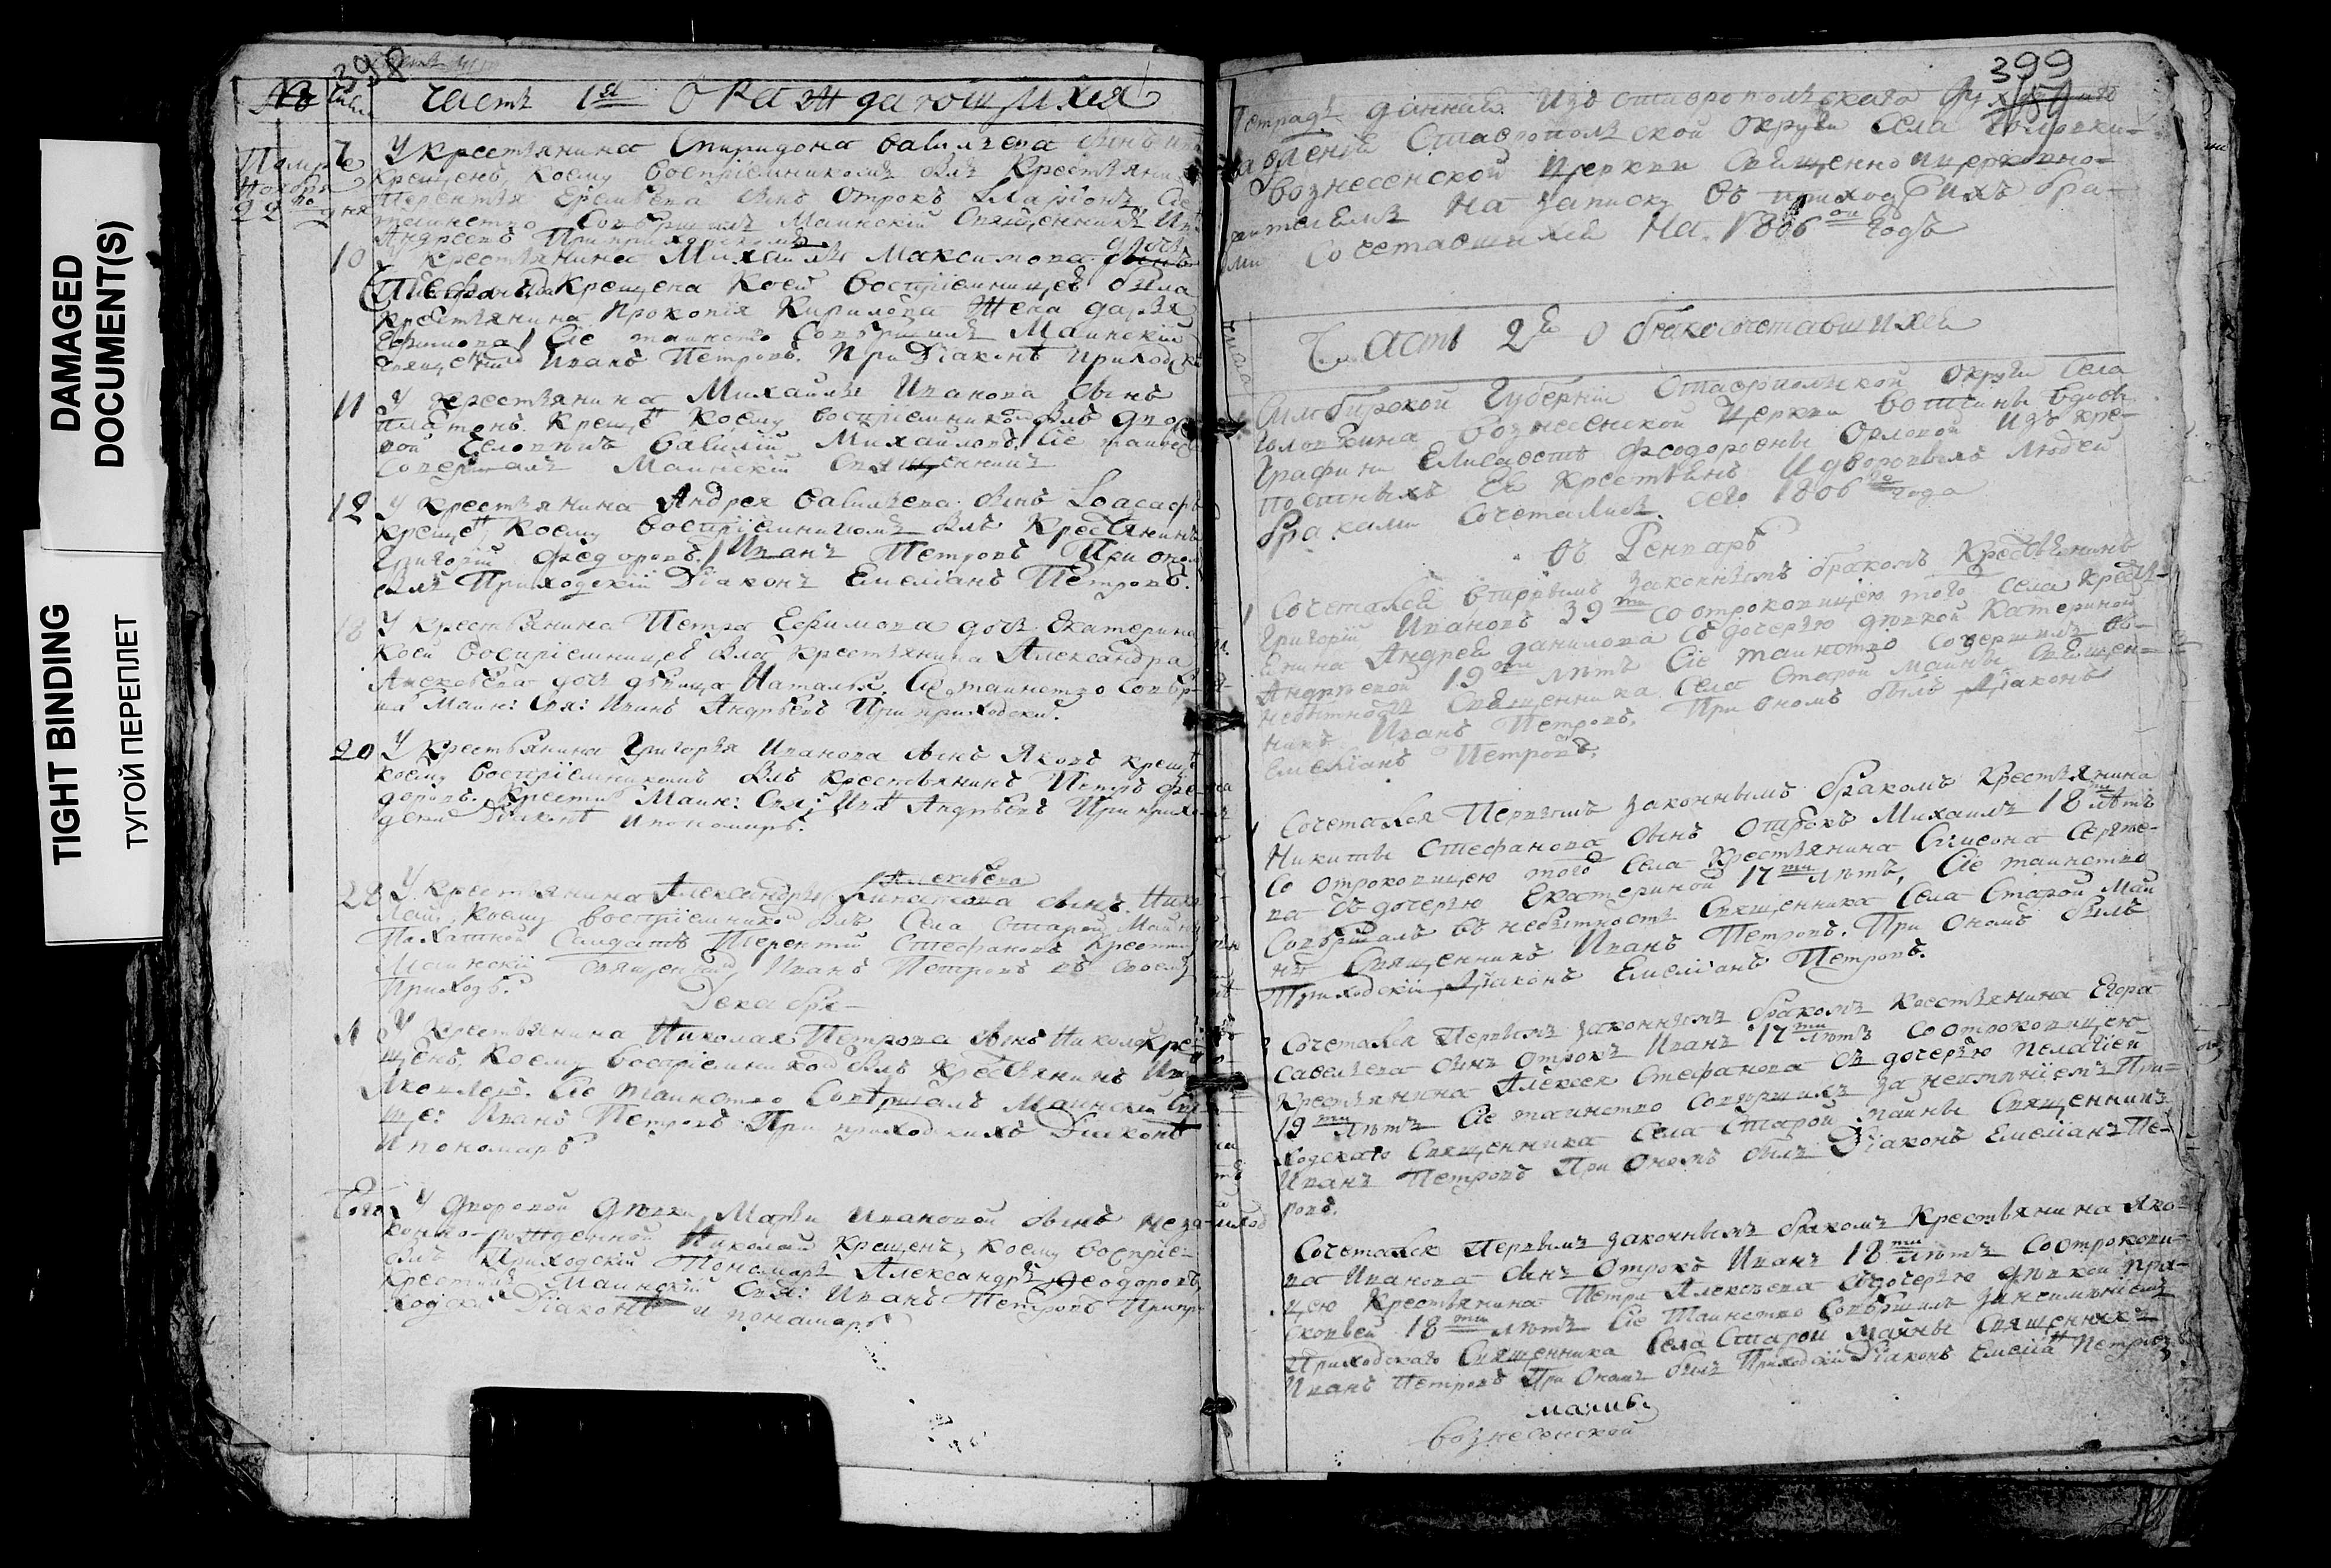 DAMAGED
DOCUMENT(S)
TIGHT BINDING
ТУГОЙ ПЕРЕПЛЕТ
398
№ Число
Часть 1я О раждающихся
Помре
Ноября
22го дня
7 У крестьянина Спиридона Васильева сынъ
крещенъ, коему восприемникомъ былъ крестьянина
Терентья Еремеева сынъ отрокъ Ларіонъ Сіе
таинство совершилъ Маинскій Священникъ
Андреевъ При приходскомъ
10 У крестьянина Михайлы Максимова дочь
крещена коей восприемницей была
крестьянина Прокопія Кирилова жена Дарья
Ефимова Сіе таинство совершилъ Маинскій
Священникъ Иванъ Петровъ. При Діаконѣ приходск
11 У крестьянина Михайлы Иванова сынъ
Платонъ крещенъ коему восприемникомъ былъ дворо
вой человѣкъ Василій Михайловъ. Сіе таинство
совершалъ Маинскій Священникъ
12 У крестьянина Андрея Васильева сынъ Іоасафъ
крещенъ коему восприемникомъ былъ крестьянинъ
Григорій Федоровъ. Иванъ Петровъ При ономъ
былъ Приходскій Діаконъ Емеліанъ Петровъ.
18 У крестьянина Петра Ефимова дочь Екатерина
коей восприемницей была крестьянина Александра
Алексѣева дочь дѣвица Наталья. Сіе таинство совер-
Маин: Свя: Иванъ Андрѣевъ При приходски.
20 У крестьянина Григорья Иванова сынъ Яковъ креще
коему восприемникомъ былъ крестьянинъ Петръ Фе
доровъ. Крести Маин: Свя: Ива Андрѣевъ При прихо
дски Діаконѣ и пономарѣ.
Алексѣева
22 У крестьянина Александры сынъ Нико
лай, коему восприемникомъ былъ Села Старой Майны
Пахатной Салдатъ Терентій Стефановъ Крестилъ
Маинскій Священникъ Иванъ Петровъ въ своемъ
Приходѣ.
Декабря
У крестьянина Николая Петрова сынъ Николай кре-
щенъ, коему восприемникомъ былъ крестьянинъ
Яковлевъ. Сіе таинство совершалъ Маинскій Свя
ще: Иванъ Петровъ При приходскихъ Діаконѣ
и пономарѣ
У дворовой дѣвки Марьи Ивановой сынъ неза-
конно-рожденной Николай крещенъ, коему восприе-
былъ Приходскій Пономарь Александръ Феодоровъ,
крестилъ Маинскій Свя: Иванъ Петровъ При при
ходски Діаконѣ и пономарѣ
399
Тетрадь данная Изъ Ставропольскаго
Ставропольской округи Села Головки-
Вознесенской Церкви Священноцерковно-
служителемъ На записку въ приходѣ ихъ бра-
ками Сочетавшихся На 1806ой годъ
Часть 2я О бракосочетавшихся
Симбирской Губерніи Ставропольской округи Села
Головкина Вознесенской Церкви вотчины вдовы
Графини Елисаветы Феодоровны Орловой Изъ кре-
постныхъ Ея крестьянъ И дворовыхъ Людей
браками сочетались сего 1806го года
въ Генварѣ
1 Сочетался вторымъ законнымъ бракомъ Крестьянинъ
Григорій Ивановъ 39ти со отроковицею того села крестья-
нина Андрей Данилова съ дочерью дѣвкой Катериной
Андреевой 19ти лѣтъ Сіе таинство совершилъ въ-
небытность Священника Села Старой Майны Священ-
никъ Иванъ Петровъ. При ономъ былъ Діаконъ
Емеліанъ Петровъ.
Сочетался Первымъ законнымъ бракомъ Крестьянина
Никиты Стефанова сынъ Отрокъ Михаилъ 18ти лѣтъ
Со отроковицею того Села Крестьянина Симеона Сергѣе-
ва съ дочерью Екатериной 17ти лѣтъ, Сіе таинство
Совершалъ въ небытность Священника Села Старой Май
ны Священникъ Иванъ Петровъ. При ономъ былъ
Приходскій Діаконъ Емеліанъ Петровъ.
3 Сочетался Первымъ законнымъ бракомъ Крестьянина Егора
Савельева сынъ отрокъ Иванъ 17ти лѣтъ Со отроковицею
Крестьянина Алексея Стефанова съ дочерью Пелагіей
19ти лѣтъ Сіе таинство совершилъ за неимѣніемъ При-
ходскаго Священника Села Старой Майны Священникъ
Иванъ Петровъ При ономъ былъ Діаконъ Емеліанъ Пет-
ровъ.
Сочетался Первымъ законнымъ бракомъ Крестьянина Яко-
ва Иванова сынъ отрокъ Иванъ 18ти лѣтъ Со отрокови-
цею Крестьянина Петра Алексѣева съ дочерью дѣвкой Пра-
сковьей 18ти лѣтъ Сіе Таинство Совершилъ за неимѣніемъ
Приходскаго Священника Села Старой Майны Священникъ
Иванъ Петровъ При ономъ былъ Приходскій Діаконъ Емеліа Петровъ
Вознесенской